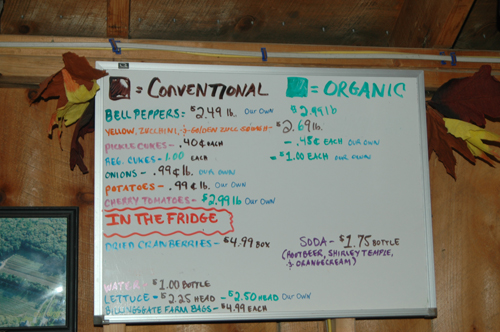 = CONVENTIONAL = ORGANIC
BELL PEPPERS: $2.49 lb. OUR OWN $2.99 lb
YELLOW, ZUCCHINI, & GOLDEN ZUCC SQUASH - $2.69 lb.
PICKLE CUKES - .40¢ EACH - .45¢ EACH OUR OWN
REG. CUKES - 1.00 EACH - $1.00 EACH OUR OWN
ONIONS - .99¢ lb. OUR OWN
POTATOES - .99¢ lb. OUR OWN
CHERRY TOMATOES - $2.99 lb OUR OWN
IN THE FRIDGE
DRIED CRANBERRIES - $4.99 BOX SODA - $1.75 BOTTLE
(ROOTBEER, SHIRLEY TEMPLE,
& ORANGE CREAM)
WATER: $1.00 BOTTLE
LETTUCE - $2.25 HEAD - $2.50 HEAD OUR OWN
BILLINGSGATE FARM BAGS - $4.99 EACH